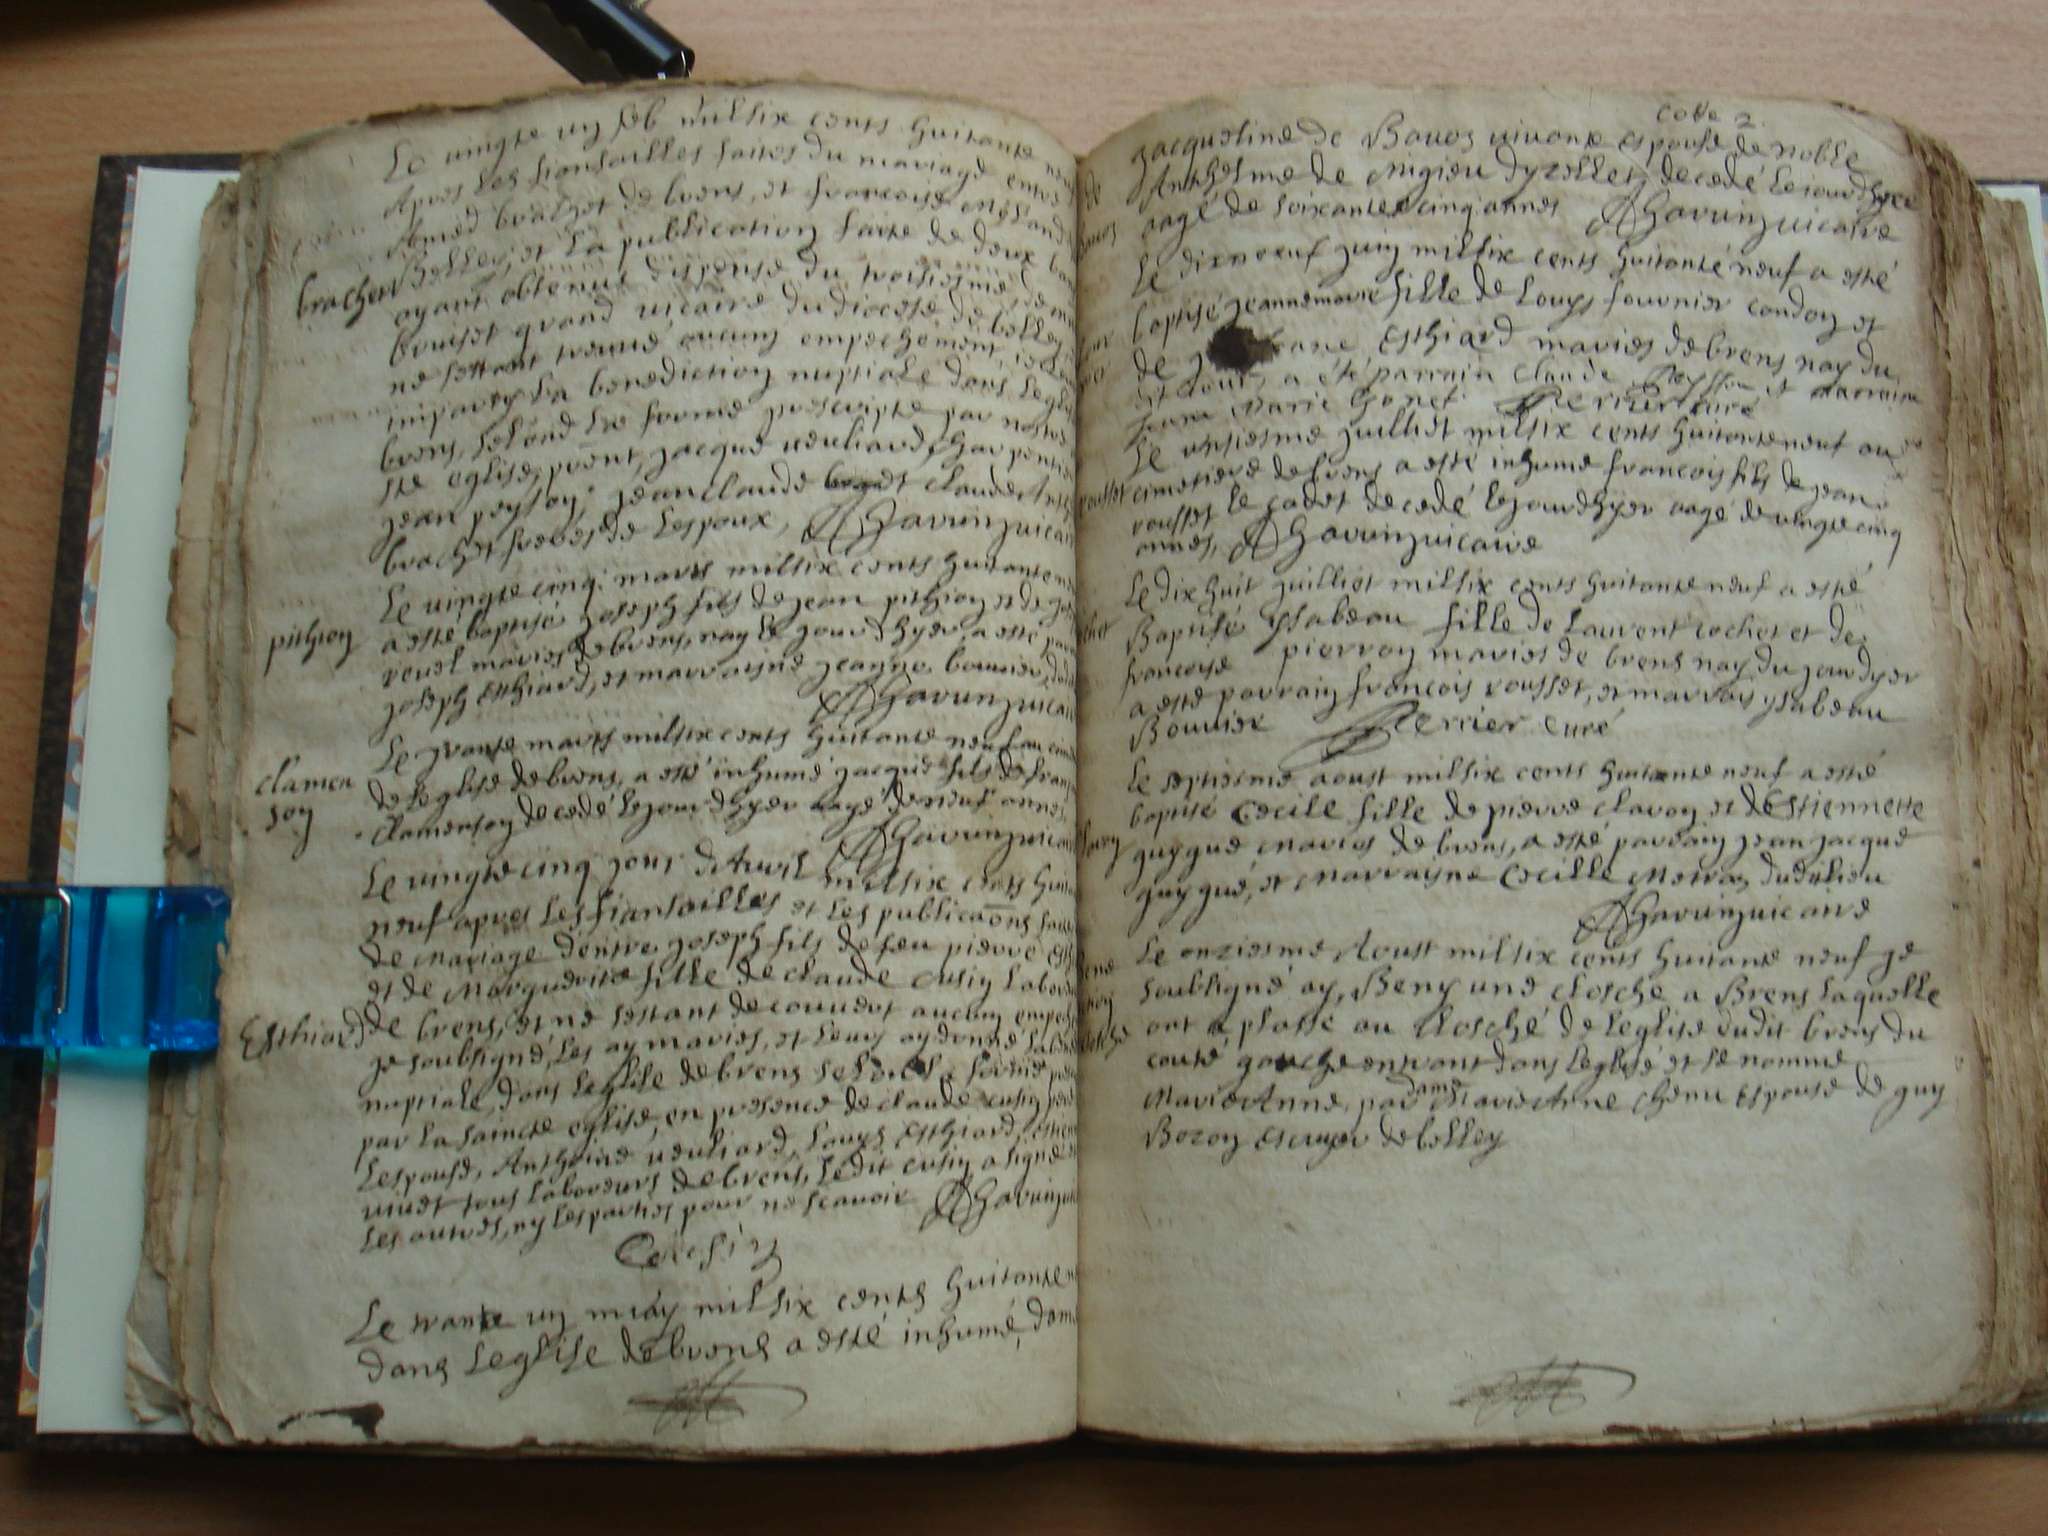 Le vingte un feb milsix cents huitante neuf
Apres les fiansailles faites du mariage entre
brachet de brens, et francoise
Belley, et la publication faite de deux
brachet
ayant obtenut dispense du troisiesme, de
grand vicaire du diocese de belley
ne sestant treuvé aucung empechement, ie
imparty la benediction nuptiale dans legli
brens, selond la forme prescripte par nostre
ste eglise, pnt, jacque veuliard, charpentie
jean peyson, jean claude et claude
brachet freres de lespoux, Gavunzuicai
Le vingte cinq mars milsix cents huitante ne
pithion
a esté baptisé joseph fils de jean pithion et de
revel maries de brens, nay le jourdhyer, a esté par
joseph Esthiard, et marrayne jeanne bouvier, du
Gavunzuicai
Le trante mars milsix cents huitante neuf au
clamen
son
de leglise de brens, a esté inhumé jacque fils de fran
Clamenson decedé lejourdhyer aagé de neuf annes
Gavunzuicai
Le vingte cinq jour d'Avril milsix cents huita
neuf apres les fiansailles et les publicaōns fai
de Mariage d'entre joseph fils de feu pierre Est
et de Marguerite fille de claude cusin labore
Esthiard
de brens, et ne sestant decouvert aucun empe
je soubsigné, les ay maries, et leurs ay donné la be
nuptiale, dans leglise de brens selond la forme
par la saincte eglise, en presence de claude cusin pere
Lespouse, Anthoine veuliard, Louys Esthiard,
vivet tous laboreurs de brens, ledit cusin a signé
les autres, ny les parties pour ne scavoir Gavunzu
Le trante un may milsix cents huitante
dans leglise de brens a esté inhumé, dame
cote 2
Jacqueline de Bavoz vivante espouse de noble
Anthelme de Migieu dyzellet, decedé lejourdhyer
aagé de soixante cinq annes Gavunzuicaire
Le dixneuf juin milsix cents huitante neuf a esté
baptisé jeannemarie fille de Louys fournier condon et
de Esthiard maries de brens nay du
dit jour, a été parrain Claude et marraine
Marie Gonet Perrier curé
Le unsiesme juilliet milsix cents huitante neuf au
cimetiere de brens a esté inhumé francois fils de jean
rousset le cadet decedé lejourdhyer aagé de vingte cinq
annes, Gavunzuicaire
Le dix huit juilliet milsix cents huitante neuf a esté
Baptisé ysabeau fille de Laurent cochet et de
francoise pierron maries de brens nay du jourdyer
a esté parrain francois rousset, et marrai ysabeau
Bouvier Perrier curé
Le septiesme aoust milsix cents huitante neuf a esté
baptisé Cecile fille de pierre clavon et de Estiennette
guygue maries de brens, a esté parrain jean jacque
guygué, et Marrayne Cecille dudit lieu
Gavunzuicaire
Le onziesme Aoust milsix cents huitante neuf je
soubsigné ay Beny une closche a Brens laquelle
ont a plassé au closché de leglise dudit brens du
couté gauche entrant dans leglise et se nomme
Marie Anne, par dame Marie Anne chenu Espouse de guy
Bozon Escuyer de belley